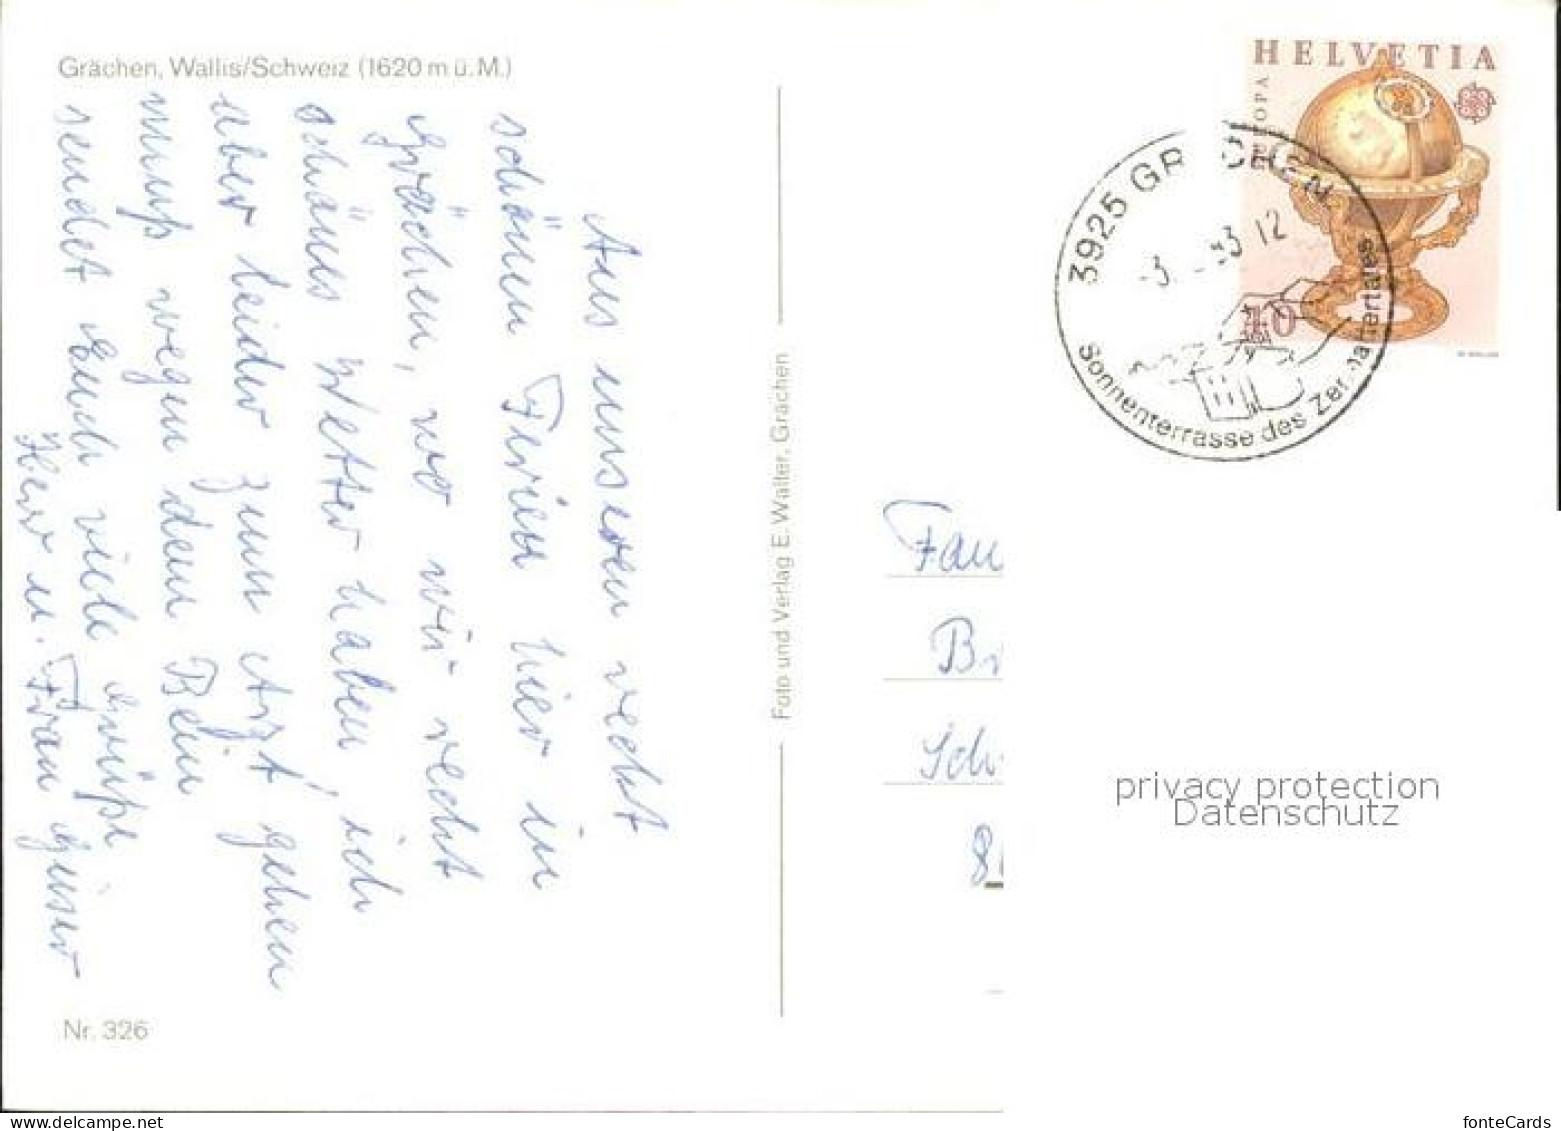 Grächen, Wallis/Schweiz (1620 m ü. M.)
Aus unseren recht
schönen Ferien hier in
Grächen, wo wir recht
schönes Wetter haben, ich
aber leider zum Arzt gehen
muß wegen dem Bein
sendet Euch viele Grüße
Herr u. Frau
Nr. 326
Foto und Verlag E. Walter, Grächen
HELVETIA
EUROPA
40
3925 GR CHEN
-3. - 83 12
Sonnenterrasse des Zer attertales
Fam
Br
Sch
8
privacy protection
Datenschutz
delcampe.net
fonteCards